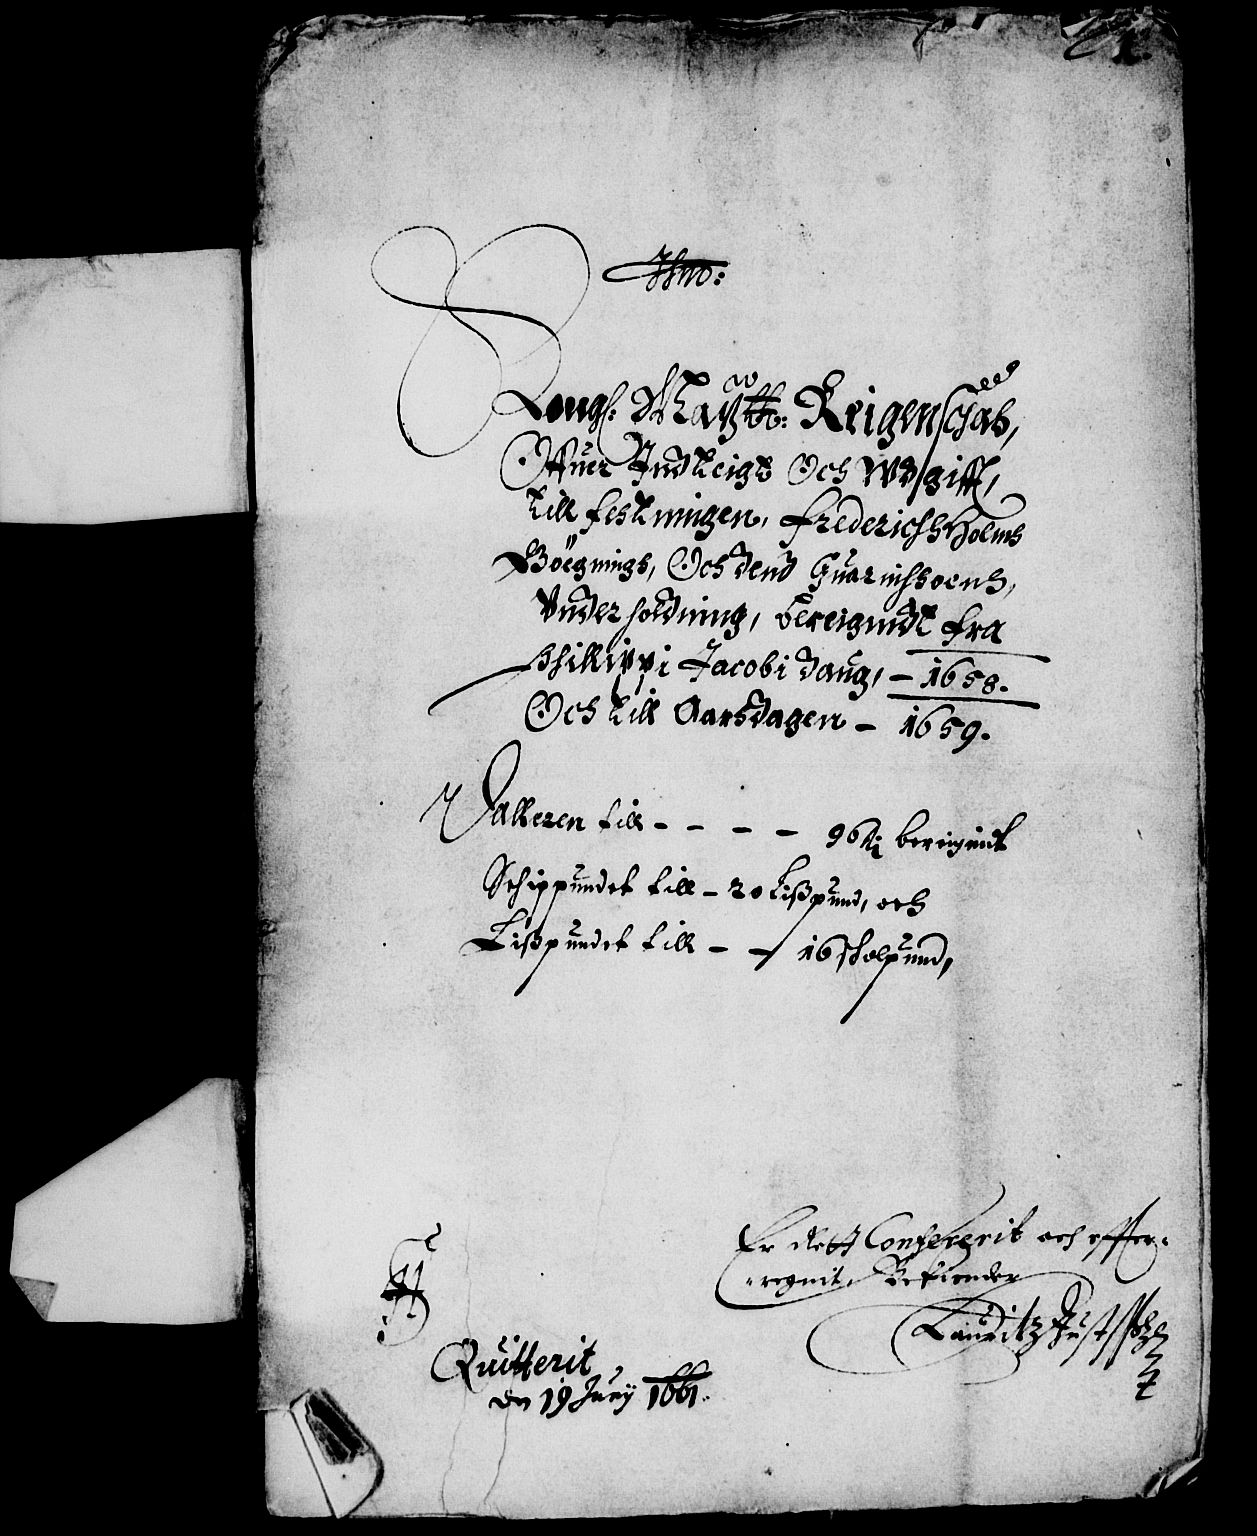 Jhwo:
Kongl: Maÿtt: Reigenschab,
Offuer Indteigt Och Wdgifft,
till festningen, Frederichsholms
Böegnings, Och dend Guarnissoens,
Vnderholdning, bereignidt fra
Phillippi Jacobi daug, – 1658.
Och till Aarsdagen – 1659.
Dalleren till - - - - 96 bereignit
Schippundet till – 20 Lißpund, och
Lißpundet till – – 16 skolpund,
Er slett Confererit och effter-
regnit, Bekiender
Lauritz Justss
Quitterit
den 19 Juny 1661.